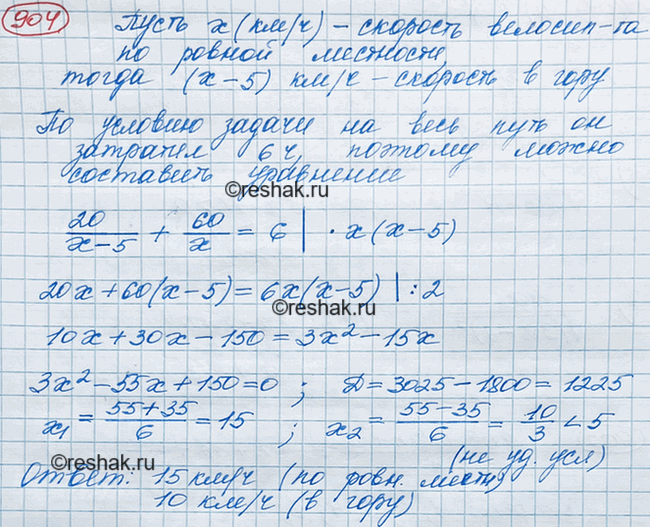 904
Пусть x (км/ч) – скорость велосип-та
по ровной местности,
тогда (x – 5) км/ч – скорость в гору
По условию задачи на весь путь он
затратил 6 ч, поэтому можно
составить уравнение
©reshak.ru
20/(x–5) + 60/x = 6 | · x(x–5)
20x + 60(x–5) = 6x(x–5) | : 2
10x + 30x – 150 = 3x² – 15x
3x² – 55x + 150 = 0 ; Д = 3025 – 1800 = 1225
x₁ = (55+35)/6 = 15 ; x₂ = (55–35)/6 = 10/3 < 5
(не уд. усл)
©reshak.ru
©reshak.ru
Ответ: 15 км/ч (по ровн. местн)
10 км/ч (в гору)